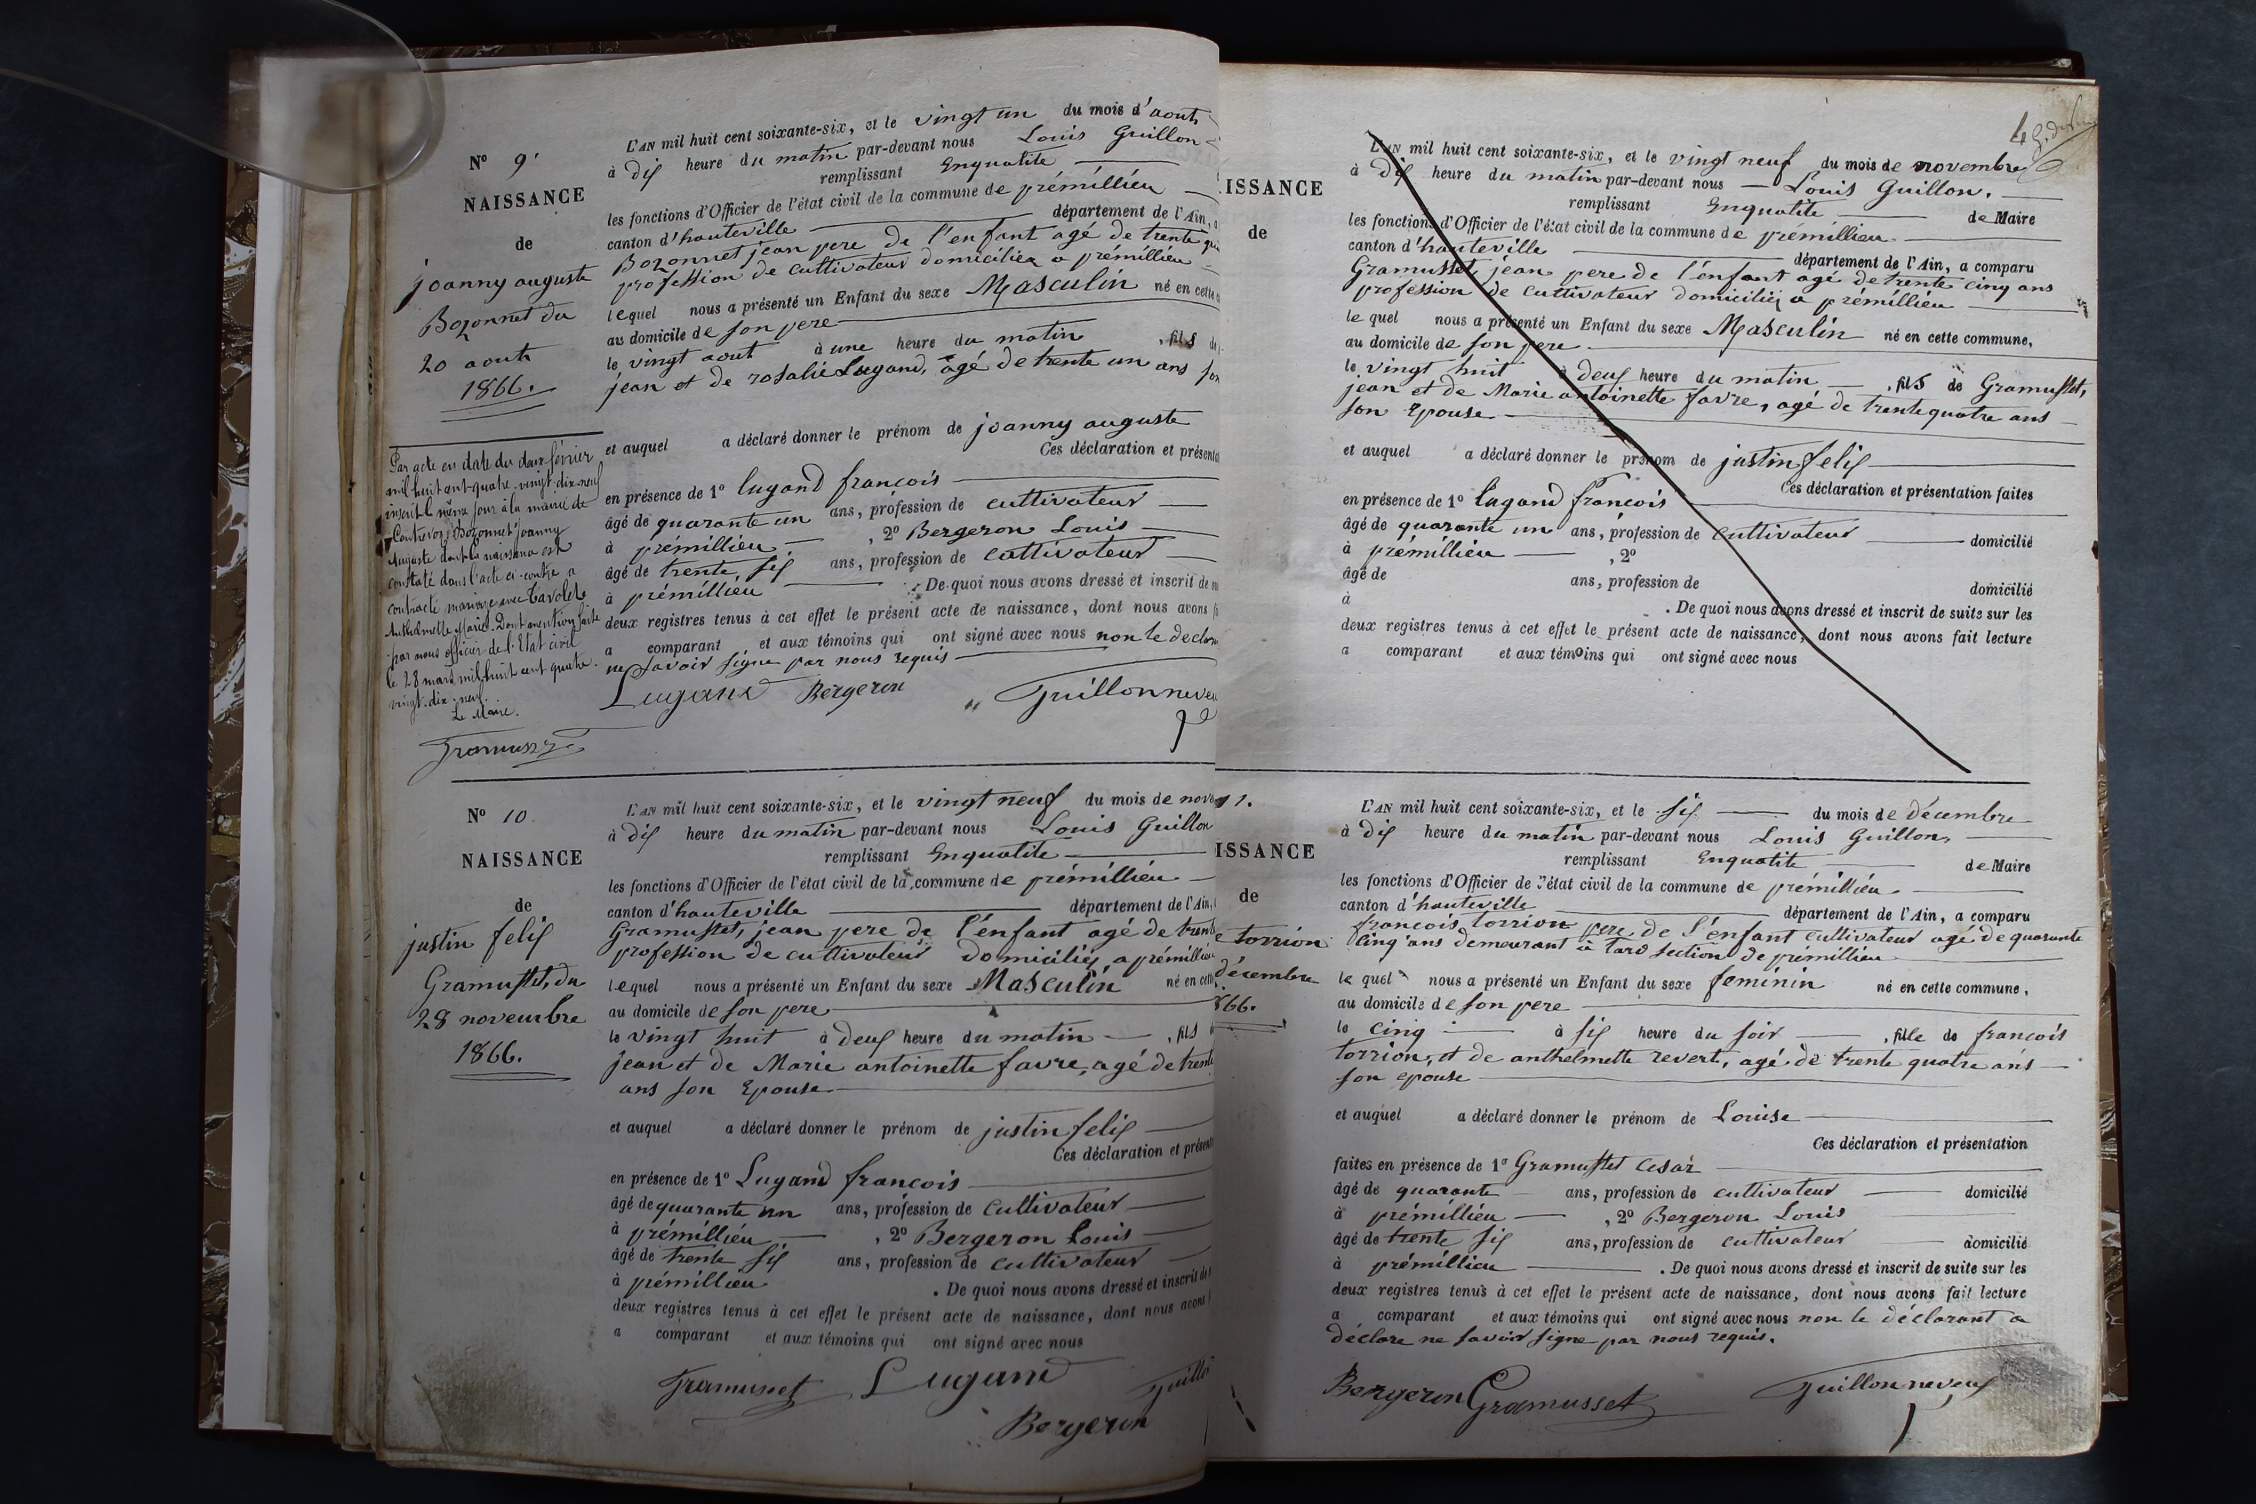 N° 9.
NAISSANCE
de
joanny auguste
Bozonnet du
20 aout
1866.
Par acte en date du deux février
mil huit cent quatre-vingt-dix-neuf
inscrit le même jour à la mairie de
Contrevoz, Bozonnet Joanny
Auguste dont la naissance est
constaté dans l'acte ci-contre a
contracté mariage avec Tavolet
Anthelmette Marie. Dont mention faite
par nous officier de l'Etat civil
le 28 mars mil huit cent quatre-
vingt-dix-neuf.
Le Maire.
Gramusset
L'AN mil huit cent soixante-six, et le vingt un du mois d'aout
à dix heure du matin par-devant nous Louis Guillon
remplissant Enqualité
les fonctions d'Officier de l'état civil de la commune de prémillieu
canton d'hauteville département de l'Ain, a
Bozonnet jean pere de l'enfant agé de trente
profession de cultivateur domicilié a prémillieu
lequel nous a présenté un Enfant du sexe Masculin né en cette
au domicile de son pere
le vingt aout à une heure du matin, fils de
jean et de rosalie Lugand, agé de trente un ans son
et auquel a déclaré donner le prénom de joanny auguste
Ces déclaration et présenta
en présence de 1° lugand francois
âgé de quarante un ans, profession de cultivateur
à prémillieu, 2° Bergeron Louis
âgé de trente six ans, profession de cultivateur
à prémillieu. De quoi nous avons dressé et inscrit de
deux registres tenus à cet effet le présent acte de naissance, dont nous avons
a comparant et aux témoins qui ont signé avec nous non le déclara
ne savoir signe par nous requis
Lugand Bergeron Guillon neveu
N° 10
NAISSANCE
de
justin felix
Gramusset, du
28 novembre
1866.
L'AN mil huit cent soixante-six, et le vingt neuf du mois de nove
à dix heure du matin par-devant nous Louis Guillon
remplissant Enqualité
les fonctions d'Officier de l'état civil de la commune de prémillieu
canton d'hauteville département de l'Ain,
Gramusset, jean pere de l'enfant agé de trente
profession de cultivateur domicilié a prémillieu
lequel nous a présenté un Enfant du sexe Masculin né en cette
au domicile de son pere
le vingt huit à deux heure du matin, fils
jean et de Marie antoinette favre, agé de trente
ans son Epouse
et auquel a déclaré donner le prénom de justin felix
Ces déclaration et présent
en présence de 1° Lugand francois
âgé de quarante un ans, profession de cultivateur
à prémillieu, 2° Bergeron Louis
âgé de trente six ans, profession de cultivateur
à prémillieu. De quoi nous avons dressé et inscrit de
deux registres tenus à cet effet le présent acte de naissance, dont nous avons
a comparant et aux témoins qui ont signé avec nous
Gramusset Lugand Guillo
Bergeron
4
ISSANCE
de
L'AN mil huit cent soixante-six, et le vingt neuf du mois de novembre
à dix heure du matin par-devant nous Louis Guillon.
remplissant Enqualité de Maire
les fonctions d'Officier de l'état civil de la commune de prémillieu
canton d'hauteville département de l'Ain, a comparu
Gramusset, jean pere de l'enfant agé de trente cinq ans
profession de cultivateur domicilié a prémillieu
le quel nous a présenté un Enfant du sexe Masculin né en cette commune,
au domicile de son pere
le vingt huit à deux heure du matin, fils de Gramusset,
jean et de Marie antoinette favre, agé de trente quatre ans
son Epouse
et auquel a déclaré donner le prénom de justin felix
Ces déclaration et présentation faites
en présence de 1° lugand francois
âgé de quarante un ans, profession de cultivateur domicilié
à prémillieu, 2°
âgé de ans, profession de domicilié
à . De quoi nous avons dressé et inscrit de suite sur les
deux registres tenus à cet effet le présent acte de naissance, dont nous avons fait lecture
a comparant et aux témoins qui ont signé avec nous
11.
ISSANCE
de
torrion
décembre
866.
L'AN mil huit cent soixante-six, et le six du mois de décembre
à dix heure du matin par-devant nous Louis Guillon,
remplissant Enqualité de Maire
les fonctions d'Officier de l'état civil de la commune de prémillieu
canton d'hauteville département de l'Ain, a comparu
francois torrion pere de l'enfant cultivateur agé de quarante
cinq ans demeurant à tard section de prémillieu
le quel nous a présenté un Enfant du sexe feminin né en cette commune,
au domicile de son pere
le cinq à six heure du soir, fille de francois
torrion, et de anthelmette revert, agé de trente quatre ans
son epouse
et auquel a déclaré donner le prénom de Louise
Ces déclaration et présentation
faites en présence de 1° Gramusset Cesar
âgé de quarante ans, profession de cultivateur domicilié
à prémillieu, 2° Bergeron Louis
âgé de trente six ans, profession de cultivateur domicilié
à prémillieu. De quoi nous avons dressé et inscrit de suite sur les
deux registres tenus à cet effet le présent acte de naissance, dont nous avons fait lecture
a comparant et aux témoins qui ont signé avec nous non le déclarant a
déclare ne savoir signe par nous requis.
Bergeron Gramusset Guillon neveu